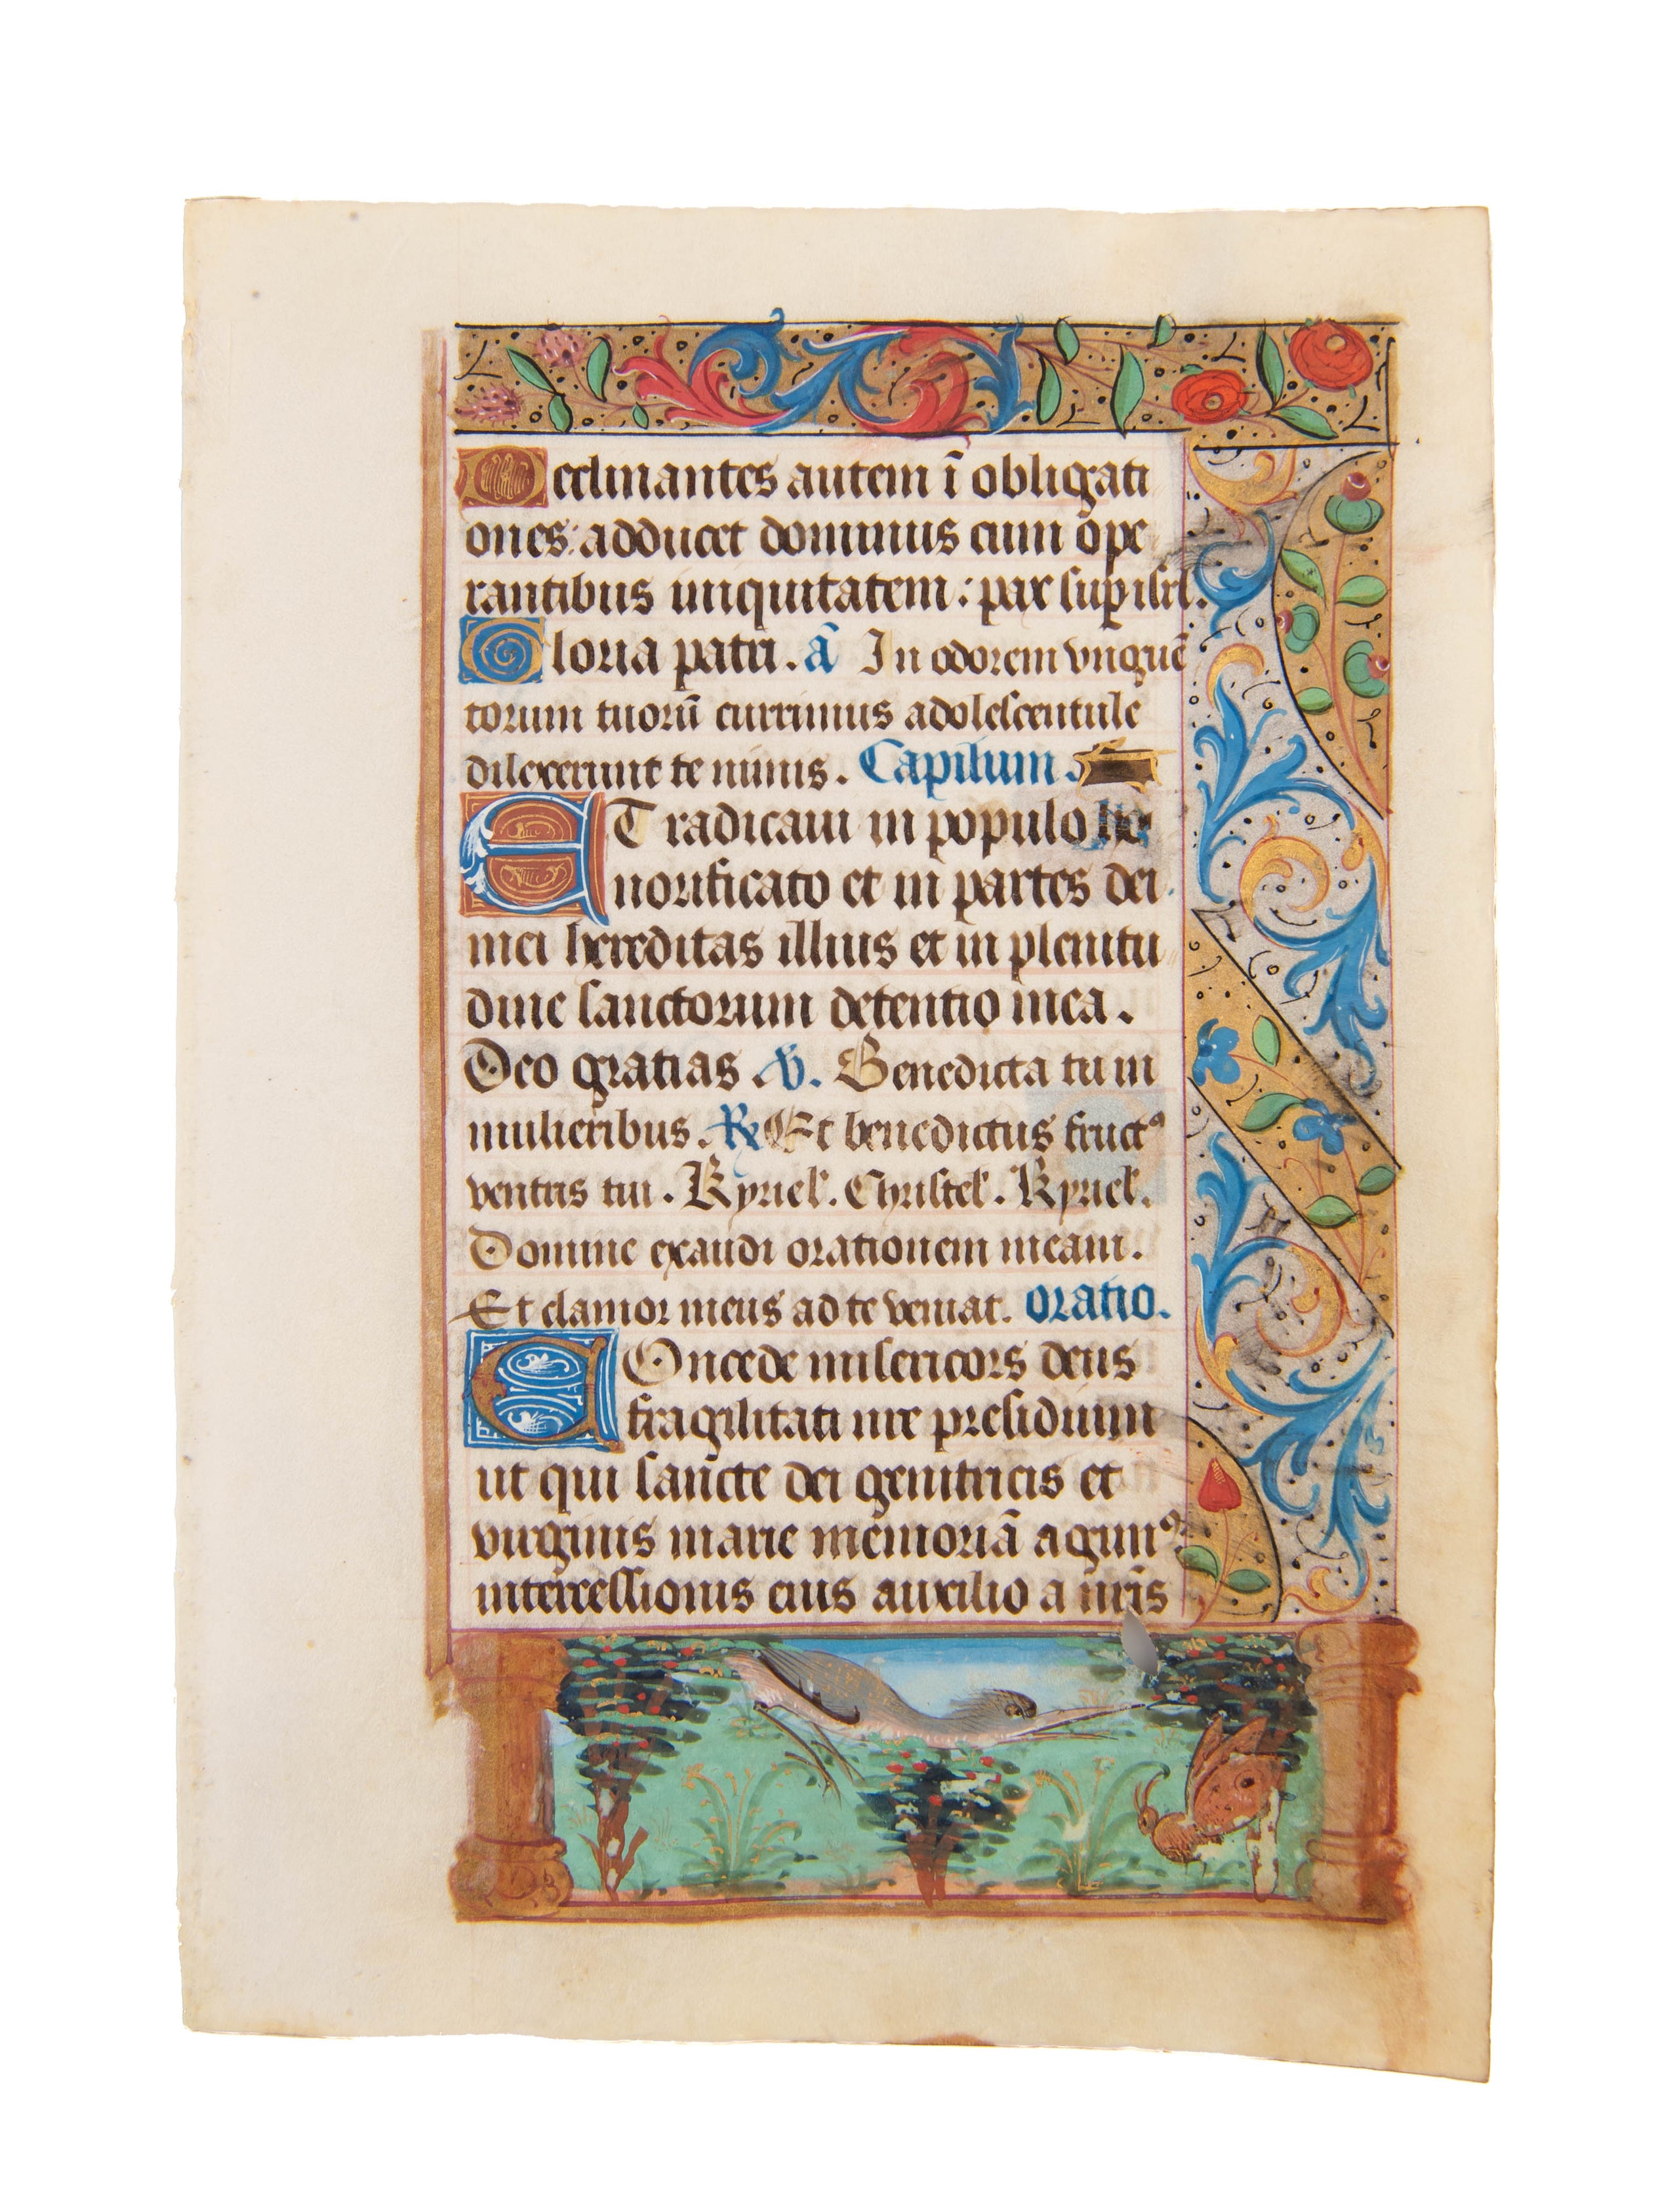 Declinantes autem ī obligati
ones: adducet dominus cum ope
rantibus iniquitatem: pax sup isrl.
Gloria patri. ā In odorem unguē
torum tuorū currimus adolescentule
dilexerunt te nimis. Capitlum.
ET radicaui in populo ho
norificato et in partes dei
mei hereditas illius et in plenitu
dine sanctorum detentio mea.
Deo gratias. V. Benedicta tu in
mulieribus. R Et benedictus fructꝰ
ventris tui. Kyriel. Christel. Kyriel.
Domine exaudi orationem meam.
Et clamor meus ad te veniat. oratio.
COncede misericors deus
fragilitati nre presidium
ut qui sancte dei genitricis et
virginis marie memoriā agimꝰ
intercessionis eius auxilio a nris